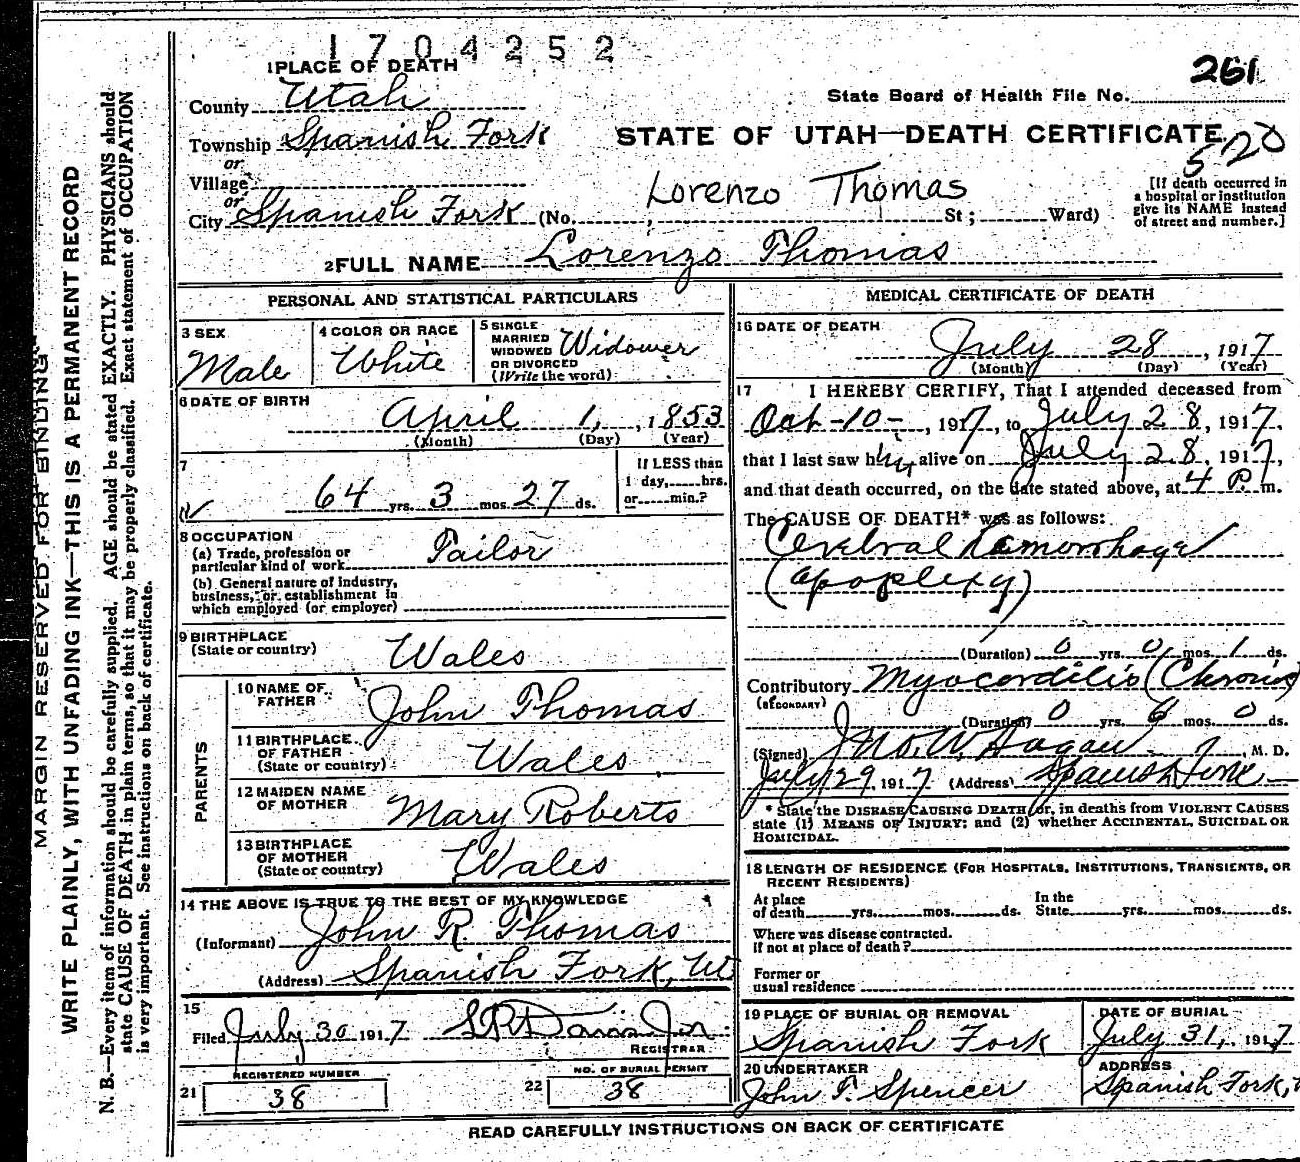 1704252
1 PLACE OF DEATH
261
County Utah
State Board of Health File No.
Township Spanish Fork
STATE OF UTAH—DEATH CERTIFICATE
520
or
Village
Lorenzo Thomas
[If death occurred in a hospital or institution give its NAME instead of street and number.]
or
City Spanish Fork (No. ; St; Ward)
2 FULL NAME Lorenzo Thomas
PERSONAL AND STATISTICAL PARTICULARS
3 SEX Male
4 COLOR OR RACE White
5 SINGLE MARRIED WIDOWED OR DIVORCED (Write the word) Widower
6 DATE OF BIRTH
April 1, , 1853
(Month) (Day) (Year)
7
64 yrs. 3 mos. 27 ds.
If LESS than
1 day, hrs.
or min.?
8 OCCUPATION
(a) Trade, profession or particular kind of work Tailor
(b) General nature of industry, business, or establishment in which employed (or employer)
9 BIRTHPLACE
(State or country) Wales
PARENTS
10 NAME OF FATHER John Thomas
11 BIRTHPLACE OF FATHER (State or country) Wales
12 MAIDEN NAME OF MOTHER Mary Roberts
13 BIRTHPLACE OF MOTHER (State or country) Wales
14 THE ABOVE IS TRUE TO THE BEST OF MY KNOWLEDGE
(Informant) John R. Thomas
(Address) Spanish Fork, Ut
15
Filed July 30 1917
REGISTRAR
REGISTERED NUMBER
21 38
NO. OF BURIAL PERMIT
22 38
MEDICAL CERTIFICATE OF DEATH
16 DATE OF DEATH
July 28 , 1917
(Month) (Day) (Year)
17 I HEREBY CERTIFY, That I attended deceased from
Oct-10-, 1917, to July 28, 1917,
that I last saw him alive on July 28, 1917,
and that death occurred, on the date stated above, at 4 P. m.
The CAUSE OF DEATH* was as follows:
Cerebral Hemorrhage
(apoplexy)
(Duration) 0 yrs. 0 mos. 1 ds.
Contributory Myocarditis (Chronic)
(SECONDARY)
(Duration) 0 yrs. 6 mos. 0 ds.
(Signed) Jno. W. Hagan , M. D.
July 29 1917 (Address) Spanish Fork
* State the DISEASE CAUSING DEATH or, in deaths from VIOLENT CAUSES
state (1) MEANS OF INJURY; and (2) whether ACCIDENTAL, SUICIDAL OR
HOMICIDAL.
18 LENGTH OF RESIDENCE (FOR HOSPITALS, INSTITUTIONS, TRANSIENTS, OR
RECENT RESIDENTS)
At place of death yrs. mos. ds. In the State yrs. mos. ds.
Where was disease contracted.
if not at place of death?
Former or
usual residence
19 PLACE OF BURIAL OR REMOVAL
Spanish Fork
DATE OF BURIAL
July 31, 1917
20 UNDERTAKER
John T. Spencer
ADDRESS
Spanish Fork,
READ CAREFULLY INSTRUCTIONS ON BACK OF CERTIFICATE
MARGIN RESERVED FOR BINDING
WRITE PLAINLY, WITH UNFADING INK—THIS IS A PERMANENT RECORD
N. B.—Every item of information should be carefully supplied. AGE should be stated EXACTLY. PHYSICIANS should
state CAUSE OF DEATH in plain terms, so that it may be properly classified. Exact statement of OCCUPATION
is very important. See instructions on back of certificate.